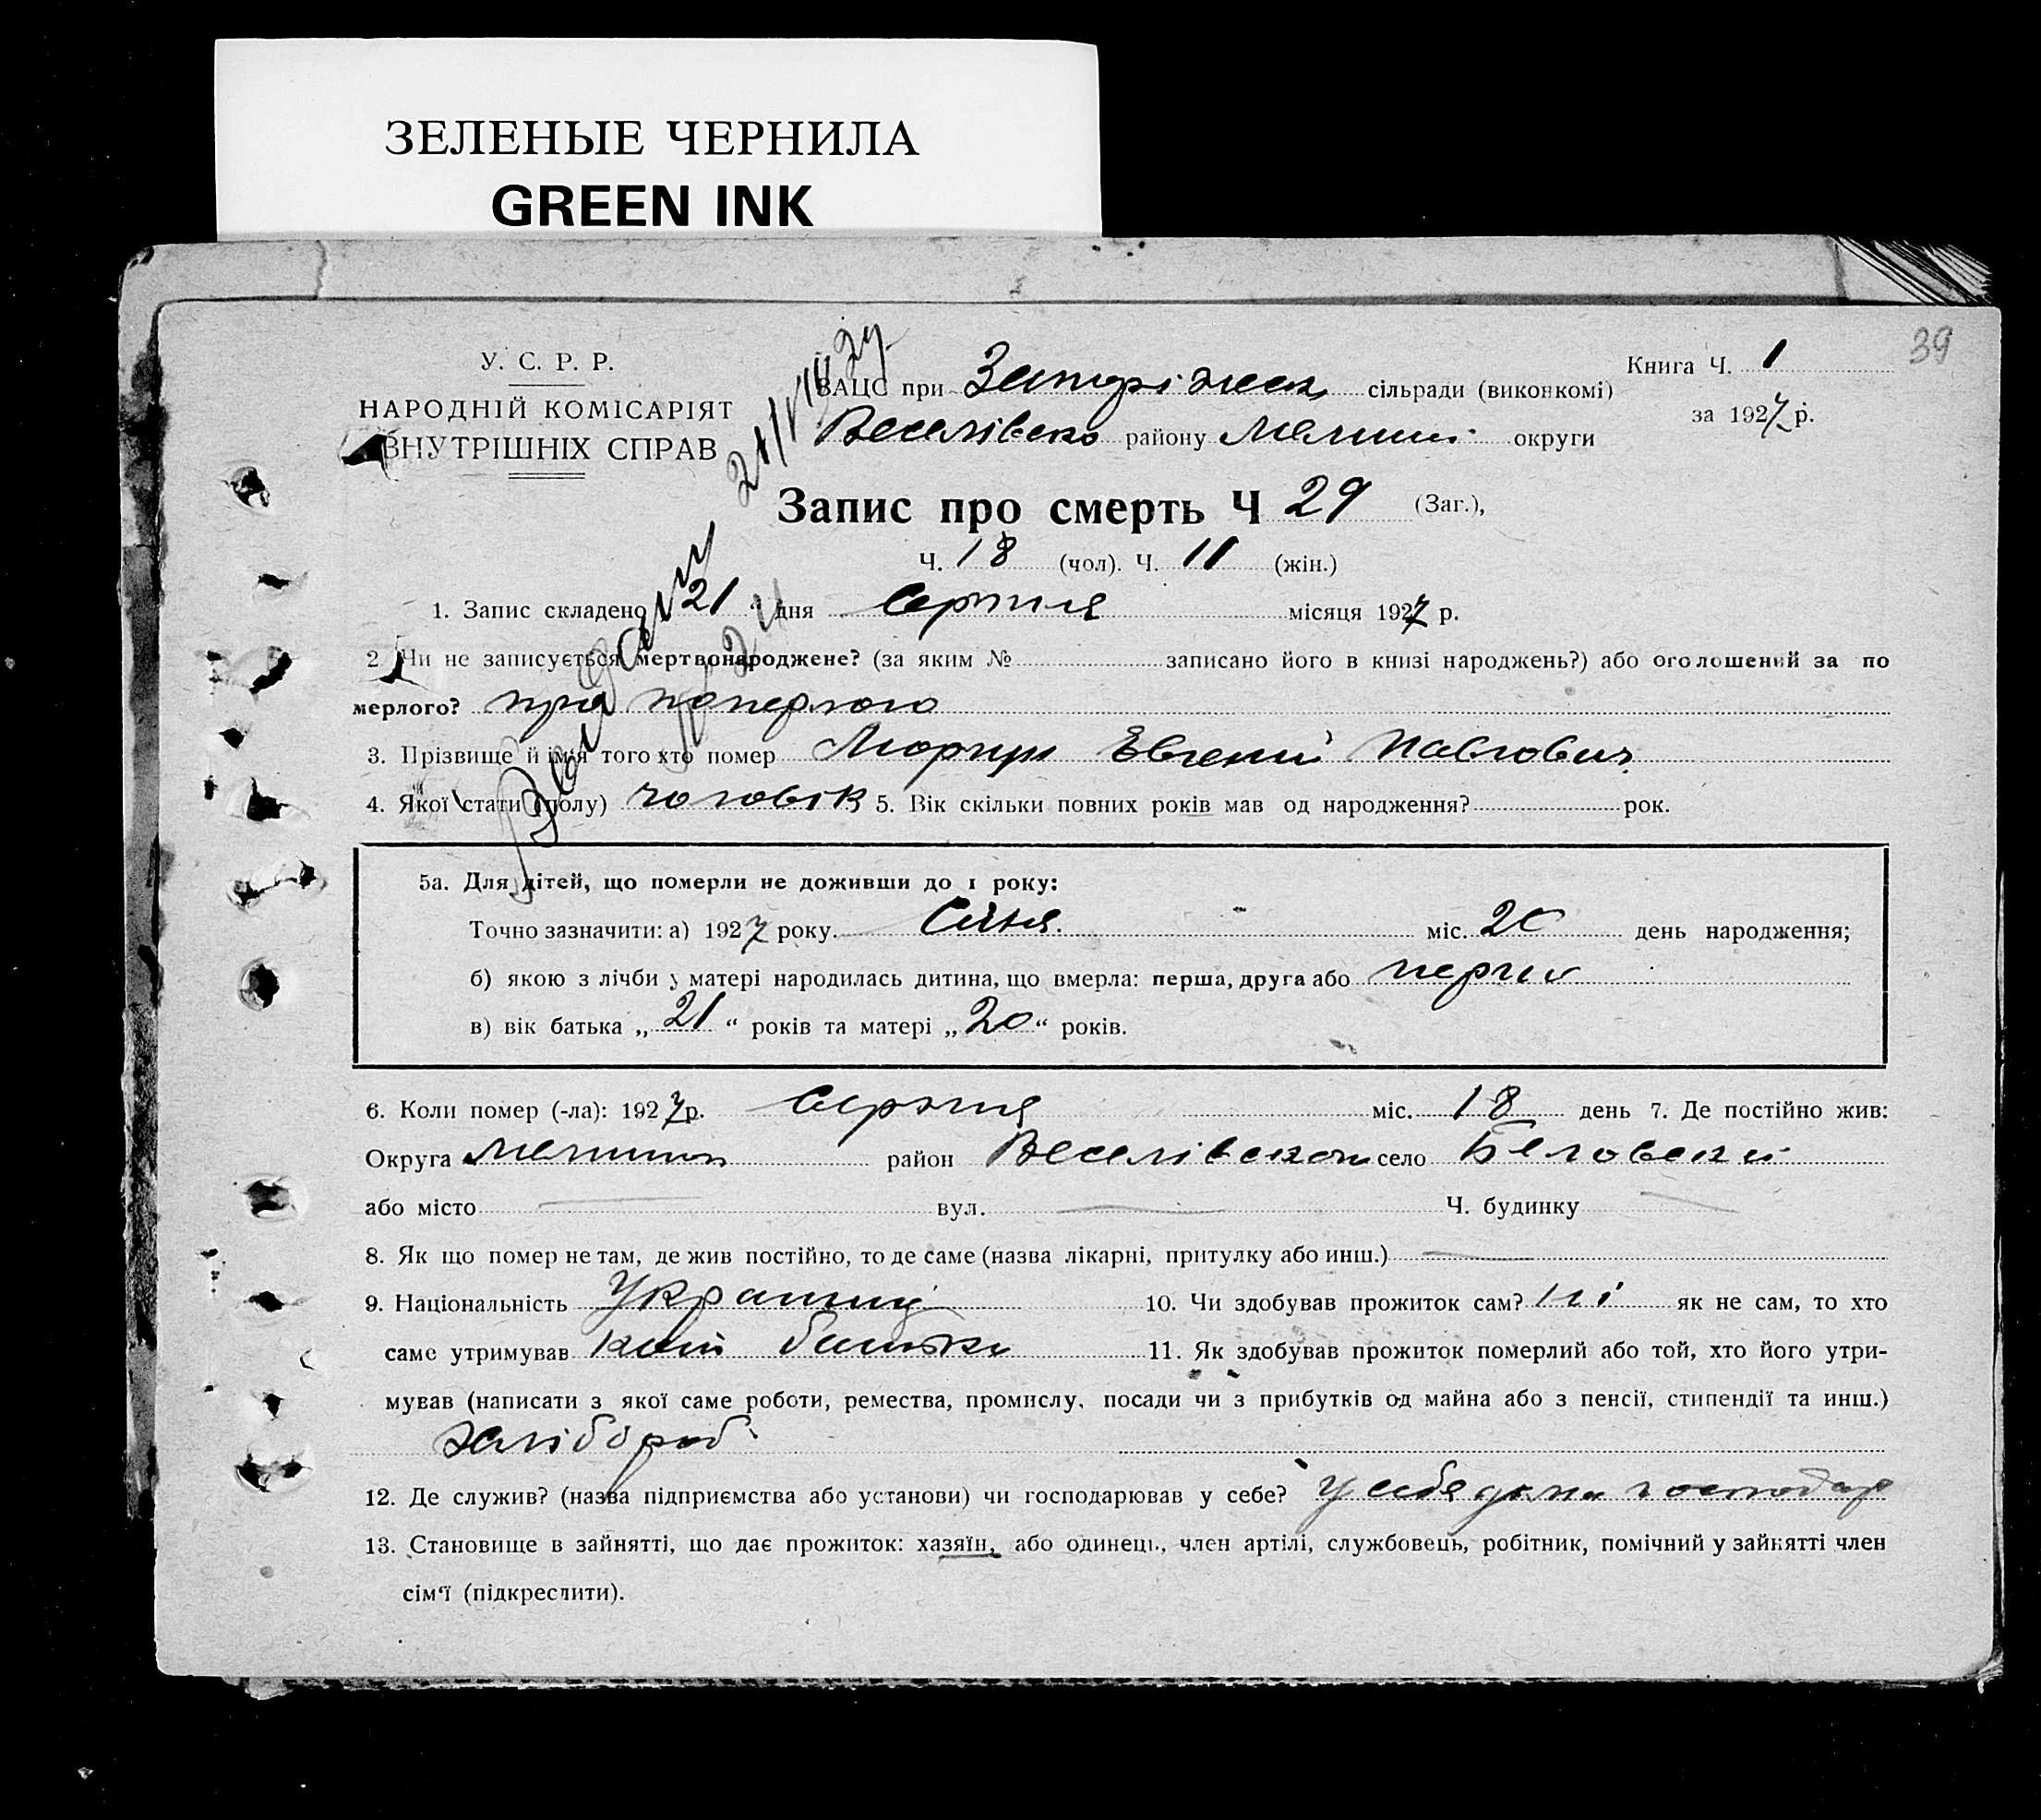 ЗЕЛЕНЫЕ ЧЕРНИЛА
GREEN INK
39
У. С. Р. Р.
НАРОДНІЙ КОМІСАРІЯТ
ВНУТРІШНІХ СПРАВ
ЗАЦС при сільради (виконкомі)
Веселівско району округи
Книга Ч. 1
за 1927 р.
Запис про смерть Ч 29 (Заг.),
Ч. 18 (чол). Ч. 11 (жін.)
1. Запис складено 21 дня Серпня місяця 1927 р.
2 Чи не записується мертвонароджене? (за яким № записано його в книзі народжень?) або оголошений за по
мерлого? про померлого
3. Прізвище й ім'я того хто помер Евгений Павлович
4. Якої стати (полу) чоловік 5. Вік скільки повних років мав од народження? рок.
5а. Для дітей, що померли не доживши до 1 року:
Точно зазначити: а) 1927 року. Січня. міс. 20 день народження;
б) якою з лічби у матері народилась дитина, що вмерла: перша, друга або
в) вік батька „ 21 “ років та матері „ 20 “ років.
6. Коли помер (-ла): 1927 р. Серпня міс. 18 день 7. Де постійно жив:
Округа район село
або місто вул. Ч. будинку
8. Як що помер не там, де жив постійно, то де саме (назва лікарні, притулку або инш.)
9. Національність 10. Чи здобував прожиток сам? ні як не сам, то хто
саме утримував 11. Як здобував прожиток померлий або той, хто його утри-
мував (написати з якої саме роботи, ремества, промислу, посади чи з прибутків од майна або з пенсії, стипендії та инш.)
хлібороб
12. Де служив? (назва підприємства або установи) чи господарював у себе? у себе дома господар
13. Становище в зайнятті, що дає прожиток: хазяїн, або одинець, член артілі, службовець, робітник, помічний у зайнятті член
сім‘ї (підкреслити).